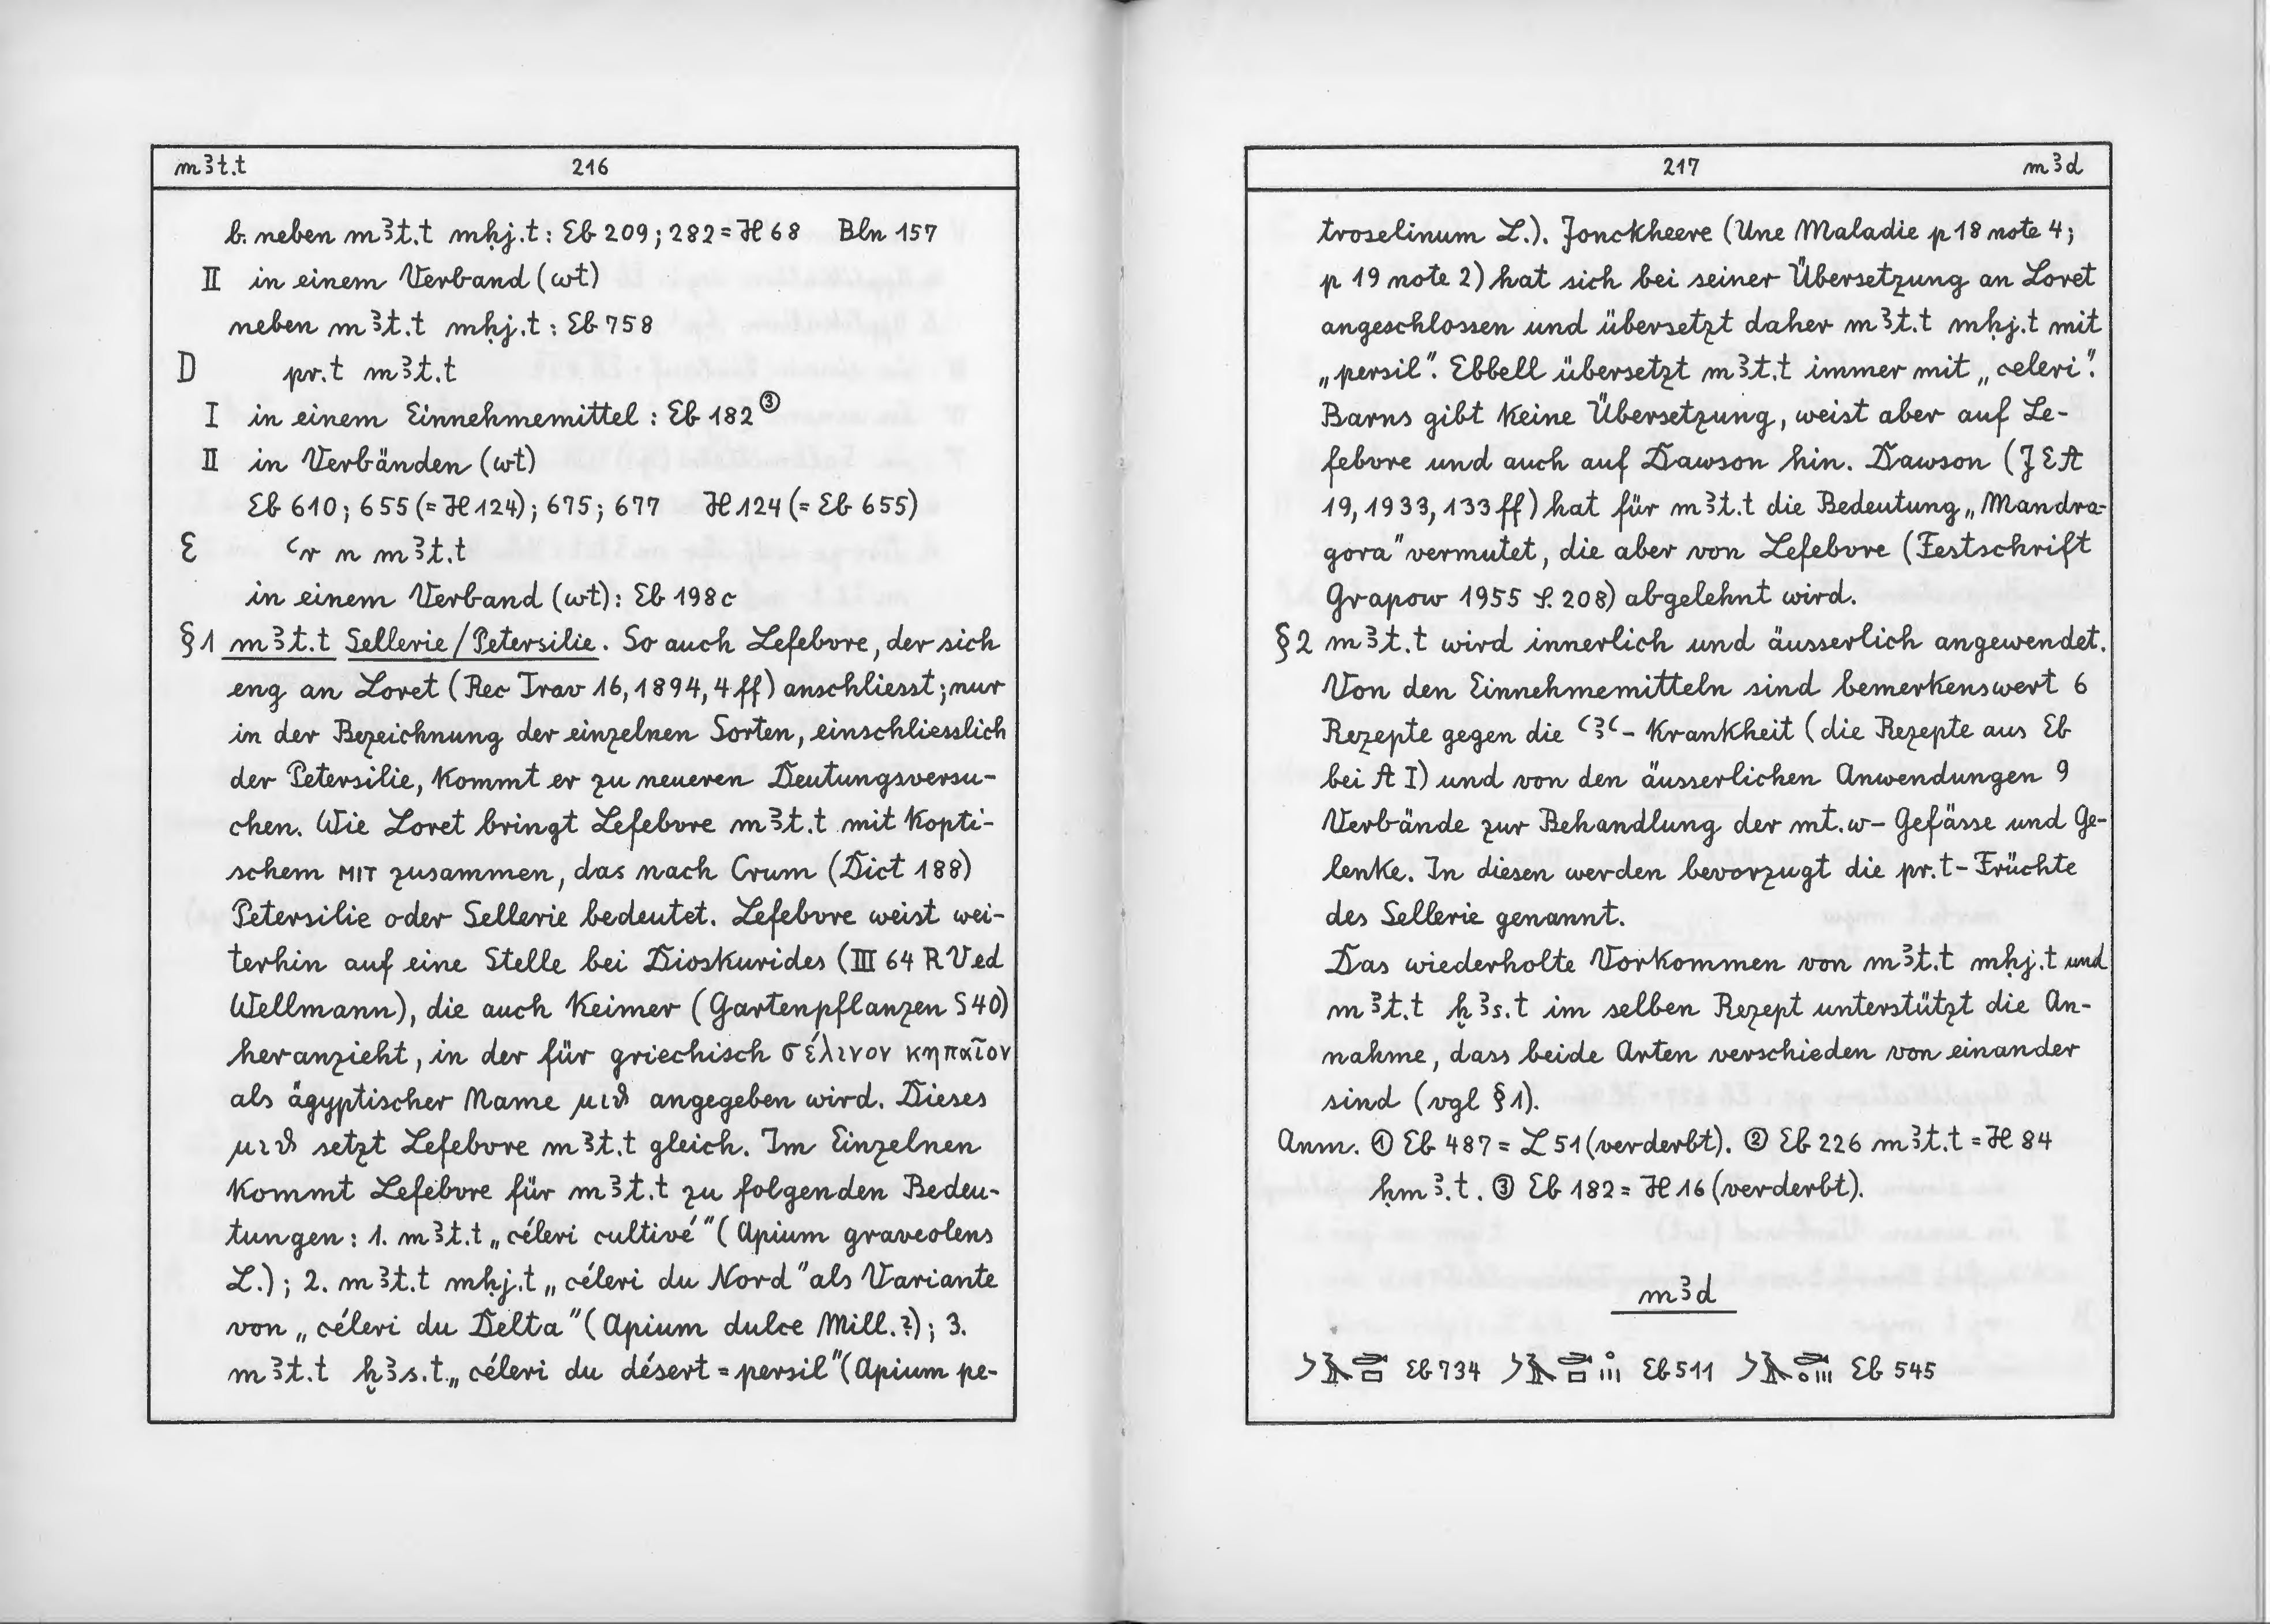 mꜣt.t 216
b. neben mꜣt.t mḥj.t: Eb 209; 282 = H 68 Bln 157
II in einem Verband (wt)
neben mꜣt.t mḥj.t: Eb 758
D pr.t mꜣt.t
I in einem Einnehmemittel: Eb 182 ③
II in Verbänden (wt)
Eb 610; 655 (= H 124); 675; 677 H 124 (= Eb 655)
E ꜥr n mꜣt.t
in einem Verband (wt): Eb 198c
§1 mꜣt.t Sellerie/Petersilie. So auch Lefebvre, der sich
eng an Loret (Rec Trav 16, 1894, 4 ff) anschliesst; nur
in der Bezeichnung der einzelnen Sorten, einschliesslich
der Petersilie, kommt er zu neueren Deutungsversu-
chen. Wie Loret bringt Lefebvre mꜣt.t mit kopti-
schem ⲙⲓⲧ zusammen, das nach Crum (Dict 188)
Petersilie oder Sellerie bedeutet. Lefebvre weist wei-
terhin auf eine Stelle bei Dioskurides (III 64 RV ed
Wellmann), die auch Keimer (Gartenpflanzen S 40)
heranzieht, in der für griechisch σέλινον κηπαῖον
als ägyptischer Name μιϑ angegeben wird. Dieses
μιϑ setzt Lefebvre mꜣt.t gleich. Im Einzelnen
kommt Lefebvre für mꜣt.t zu folgenden Bedeu-
tungen: 1. mꜣt.t „céleri cultivé" (Apium graveolens
L.); 2. mꜣt.t mḥj.t „céleri du Nord" als Variante
von „céleri du Delta" (Apium dulce Mill.?); 3.
mꜣt.t ḫꜣs.t „céleri du désert = persil" (Apium pe-
217 mꜣd
troselinum L.). Jonckheere (Une Maladie p 18 note 4;
p 19 note 2) hat sich bei seiner Übersetzung an Loret
angeschlossen und übersetzt daher mꜣt.t mḥj.t mit
„persil". Ebbell übersetzt mꜣt.t immer mit „celeri".
Barns gibt keine Übersetzung, weist aber auf Le-
febvre und auch auf Dawson hin. Dawson (JEA
19, 1933, 133 ff) hat für mꜣt.t die Bedeutung „Mandra-
gora" vermutet, die aber von Lefebvre (Festschrift
Grapow 1955 S. 208) abgelehnt wird.
§2 mꜣt.t wird innerlich und äusserlich angewendet.
Von den Einnehmemitteln sind bemerkenswert 6
Rezepte gegen die ꜥꜣꜥ-Krankheit (die Rezepte aus Eb
bei A I) und von den äusserlichen Anwendungen 9
Verbände zur Behandlung der mt.w-Gefässe und Ge-
lenke. In diesen werden bevorzugt die pr.t-Früchte
des Sellerie genannt.
Das wiederholte Vorkommen von mꜣt.t mḥj.t und
mꜣt.t ḫꜣs.t im selben Rezept unterstützt die An-
nahme, dass beide Arten verschieden von einander
sind (vgl §1).
Anm. ① Eb 487 = L 51 (verderbt). ② Eb 226 mꜣt.t = H 84
ḥmꜣ.t. ③ Eb 182 = H 16 (verderbt).
mꜣd
Eb 734 Eb 511 Eb 545